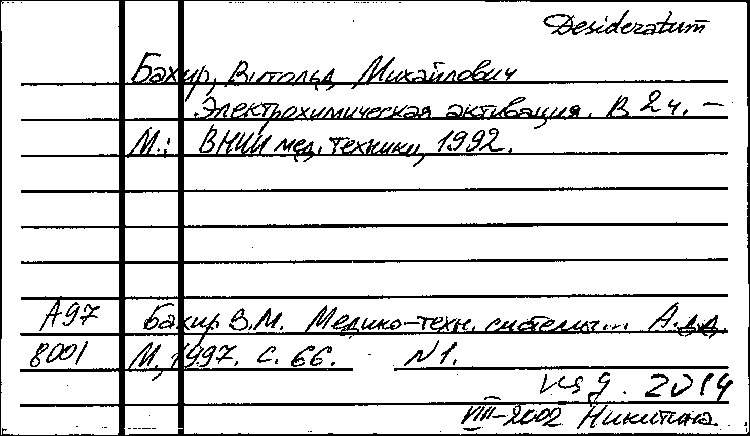 Desideratum
Бахир, Витольд Михайлович
Электрохимическая активация. В 2 ч. –
М.: ВНИИ мед. техники, 1992.
А97 Бахир В.М. Медико-техн. системы... А.д.д.
8001 М., 1997. С. 66. N1.
изд. 2014
VIII-2002 Никитина